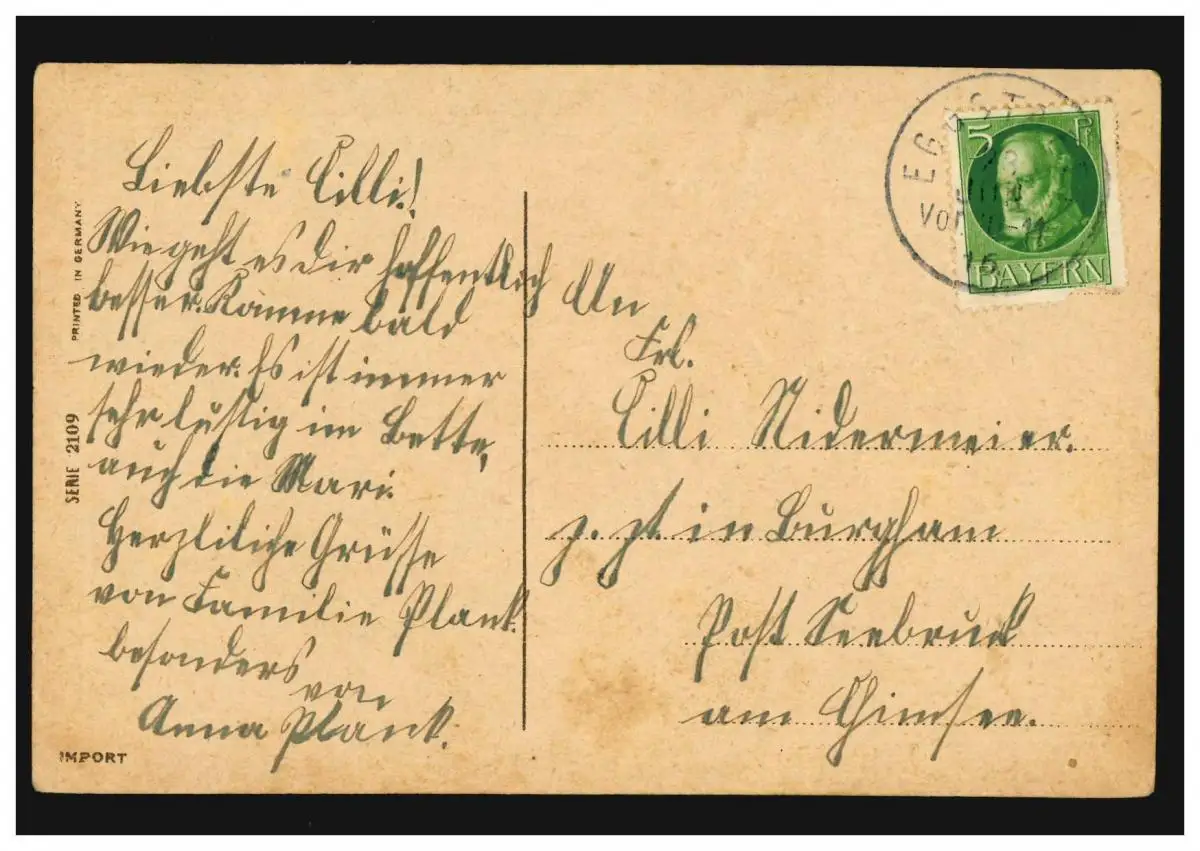 Liebste Cilli!
Wie geht es dir hoffentlich
besser. Komme bald
wieder. Es ist immer
sehr lustig im Bette,
auch die Mari.
Herzliliche Grüsse
von Familie Plank.
besonders
von
Anna Plank.
PRINTED IN GERMANY
SERIE 2109
IMPORT
5 Pf
BAYERN
JUN
VOR 10-11
15
An
Frl.
Cilli Nidermeier.
z. Zt. in Burgham
Post Seebruck
am Chimsee.